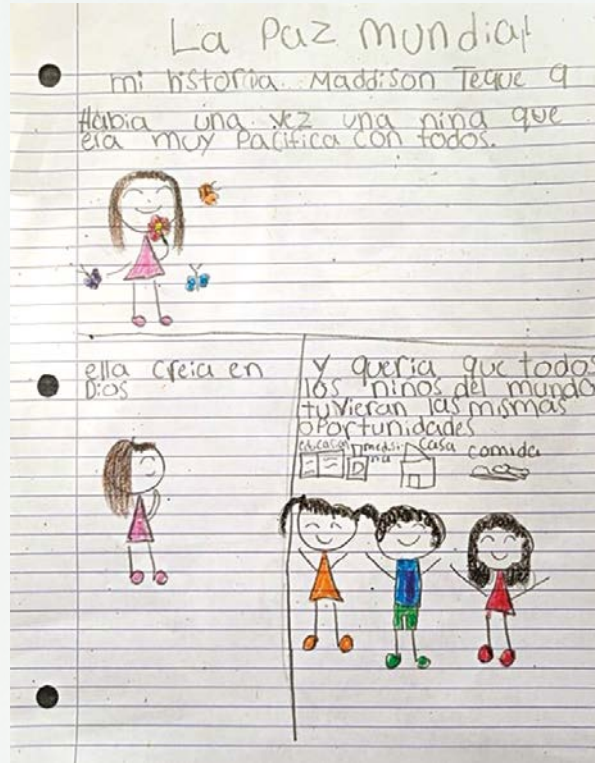 La Paz mundial
mi historia. Maddison Teque 9
Habia una vez una niña que
era muy Pacifica con todos.
ella creia en
Dios
y queria que todos
los niños del mundo
tuvieran las mismas
oportunidades
educasion
medisi
na
casa
comida